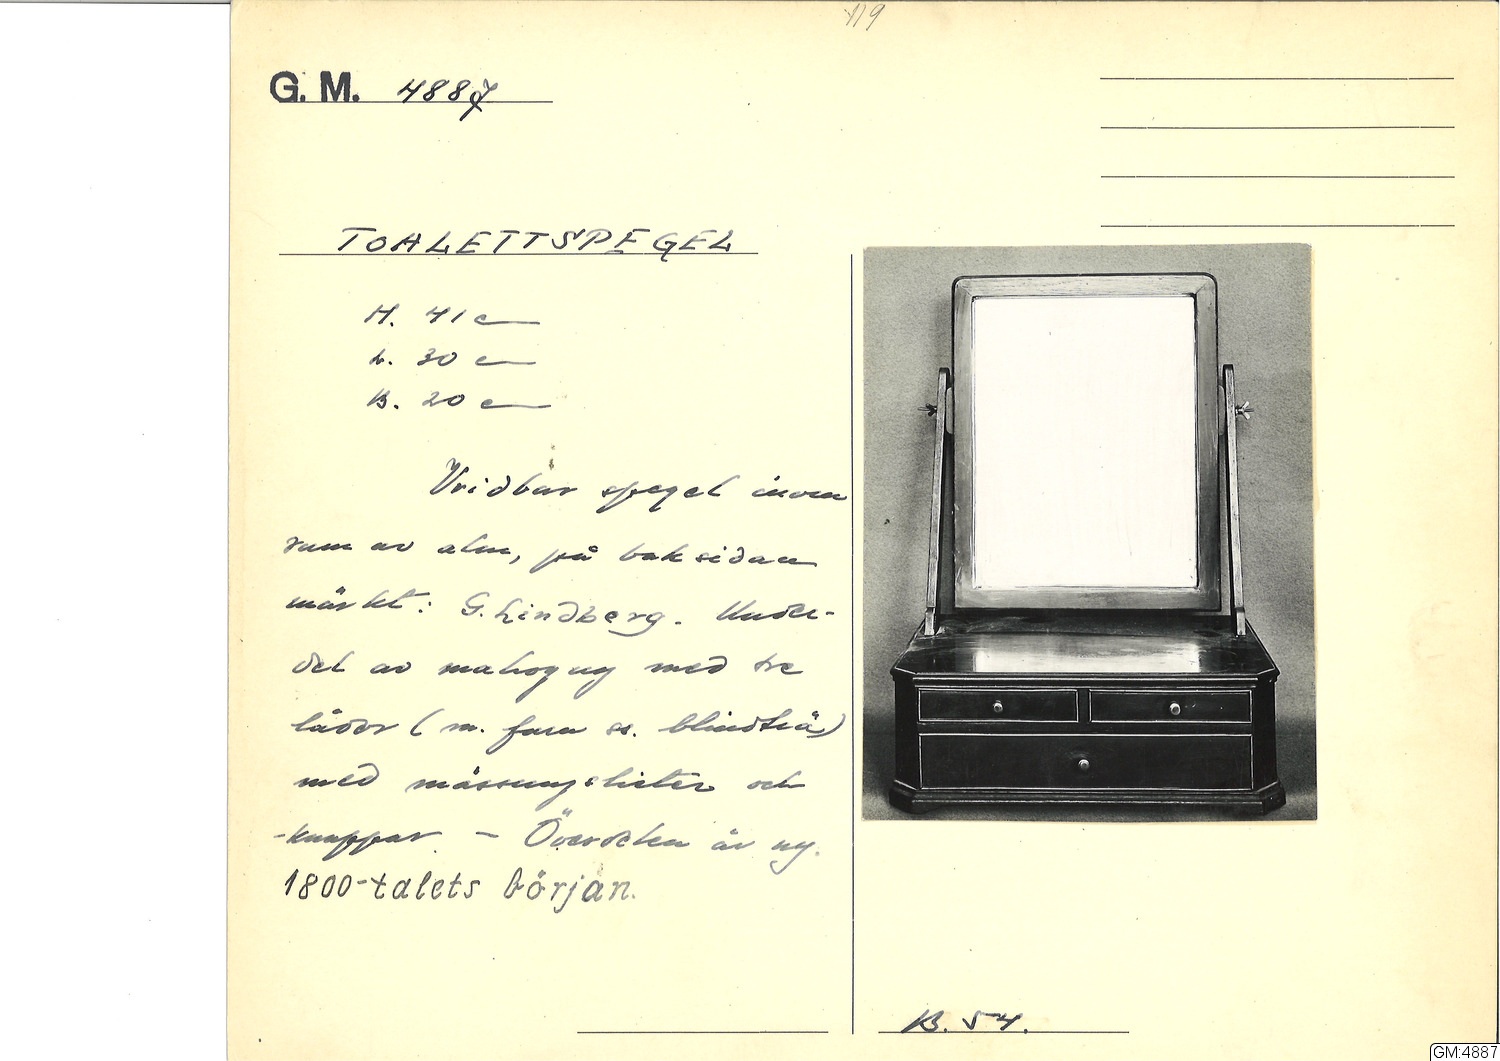 119
G. M. 4887
TOALETTSPEGEL
H. 41 c
L. 30 c
B. 20 c
Vridbar spegel inom
ram av alm, på baksidan
märkt: G. Lindberg. Under-
del av mahogny med tre
lådor (m. furu ss. blindträ)
med mässingslister och
-knappar. — Överdelen är ny.
1800-talets början.
B. 54.
GM:4887